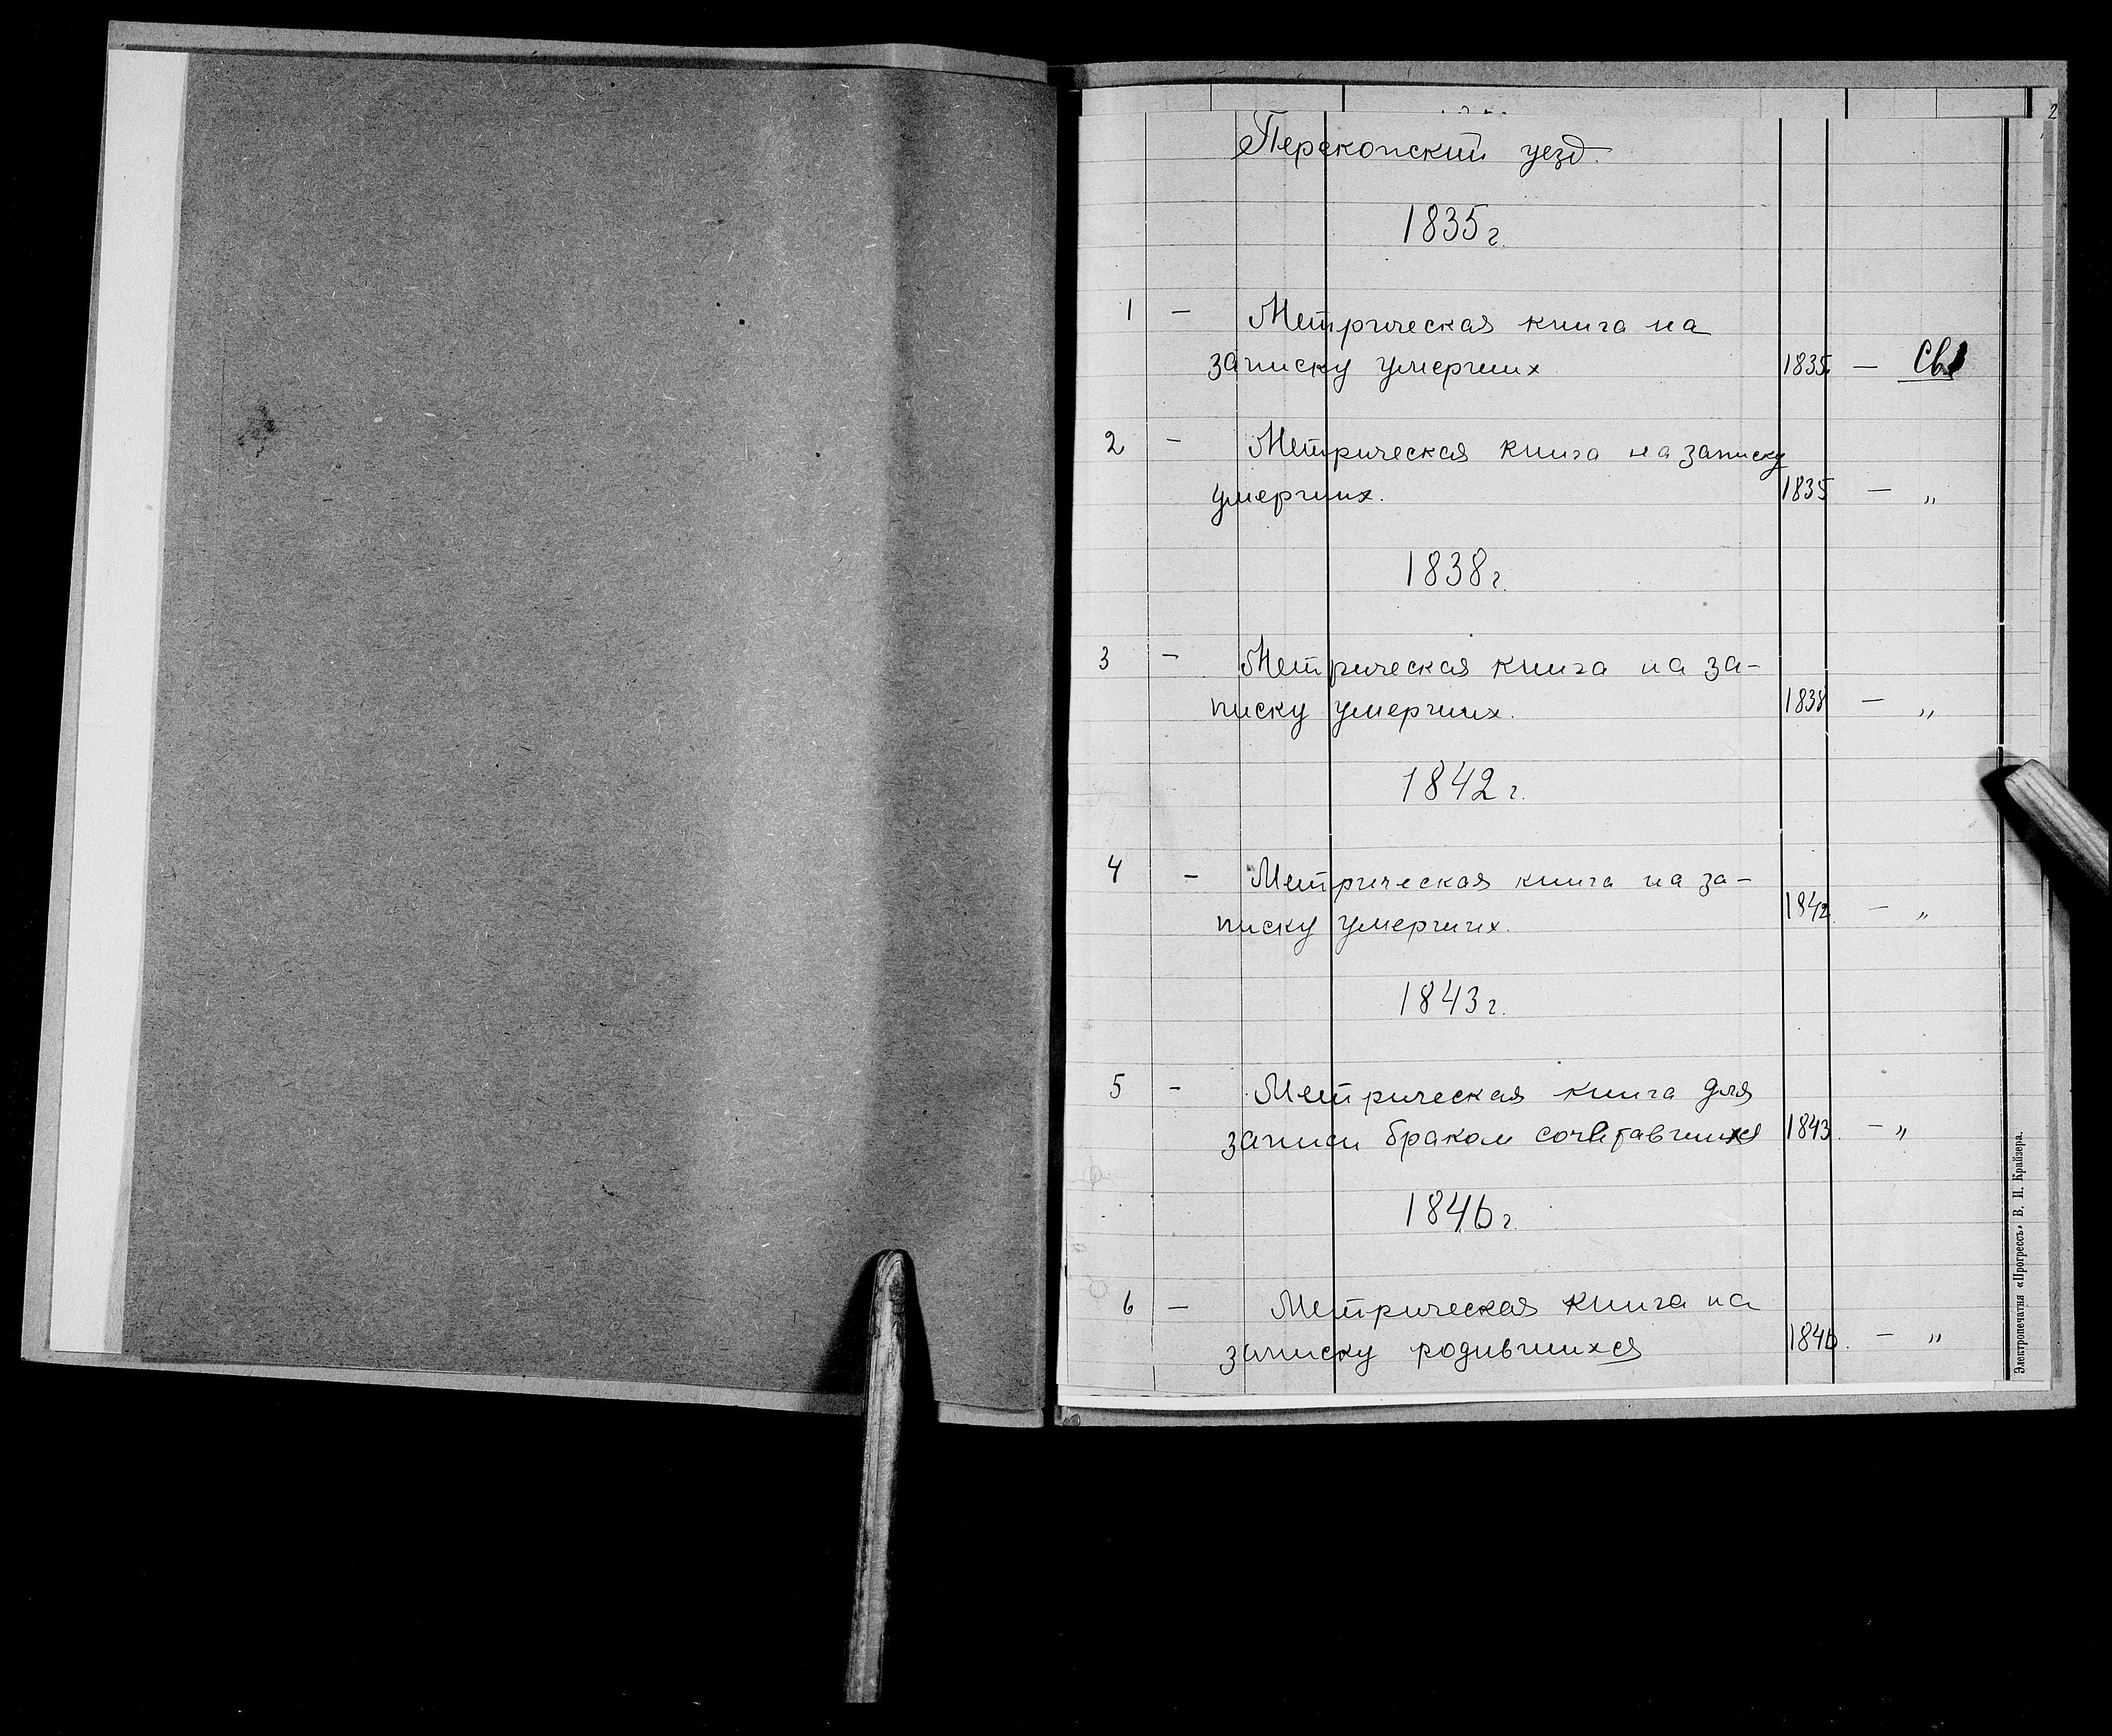 2
Перекопский уезд.
1835 г.
1 - Метрическая книга на
записку умерших 1835. - Св.
2 - Метрическая книга на записку
умерших. 1835 - „
1838 г.
3 - Метрическая книга на за-
писку умерших. 1838 - „
1842 г.
4 - Метрическая книга на за-
писку умерших. 1842. - „
1843 г.
5 - Метрическая книга для
записи браком сочетавшихся 1843. - „
1846 г.
6 - Метрическая книга на
записку родившихся 1846. - „
Электропечатня «Прогрессъ» В. И. Крайзера.